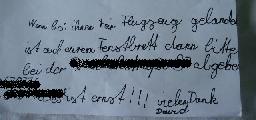 Wenn bei ihnen ein Flugzeug gelandet
ist auf ihrem Fensterbrett dann bitte
bei der abgeben
ist ernst!!! vielen Dank
David